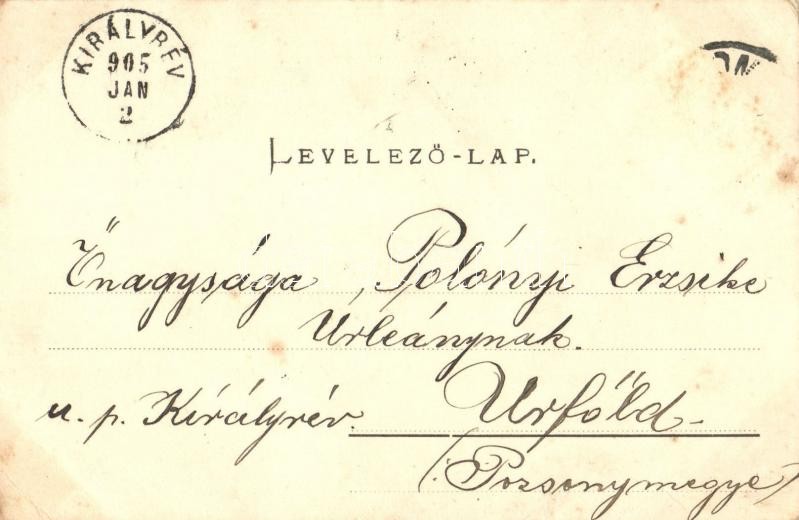 KIRÁLYRÉV
905
JAN
2
LEVELEZŐ-LAP.
Őnagysága, Polónyi Erzsike
Úrleánynak.
u. p. Királyrév. Urföld-
(Pozsonymegye)